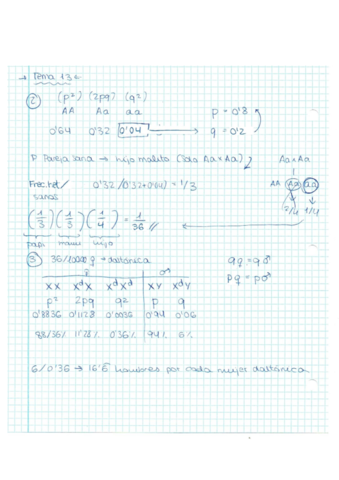 → Tema 13c
② (p²) (2pq) (q²)
AA Aa aa p = 0'8
0'64 0'32 0'04 → q = 0'2
Pareja sana → hijo malito (2dos Aa×Aa) Aa×Aa
AA Aa aa
2/4 1/4
Frec. het/sanos 0'32/(0'32+0'64) = 1/3
(1/3) (1/3) (1/4) = 1/36
papi mami hijo
③ 36/10000 ♀ → daltónica qq = q♂
♀ ♂ pq = p♂
XX XᵈX XᵈXᵈ XY XᵈY
p² 2pq q² p q
0'8836 0'1128 0'0036 0'94 0'06
88'36% 11'28% 0'36% 94% 6%
6/0'36 → 16'6 hombres por cada mujer daltónica